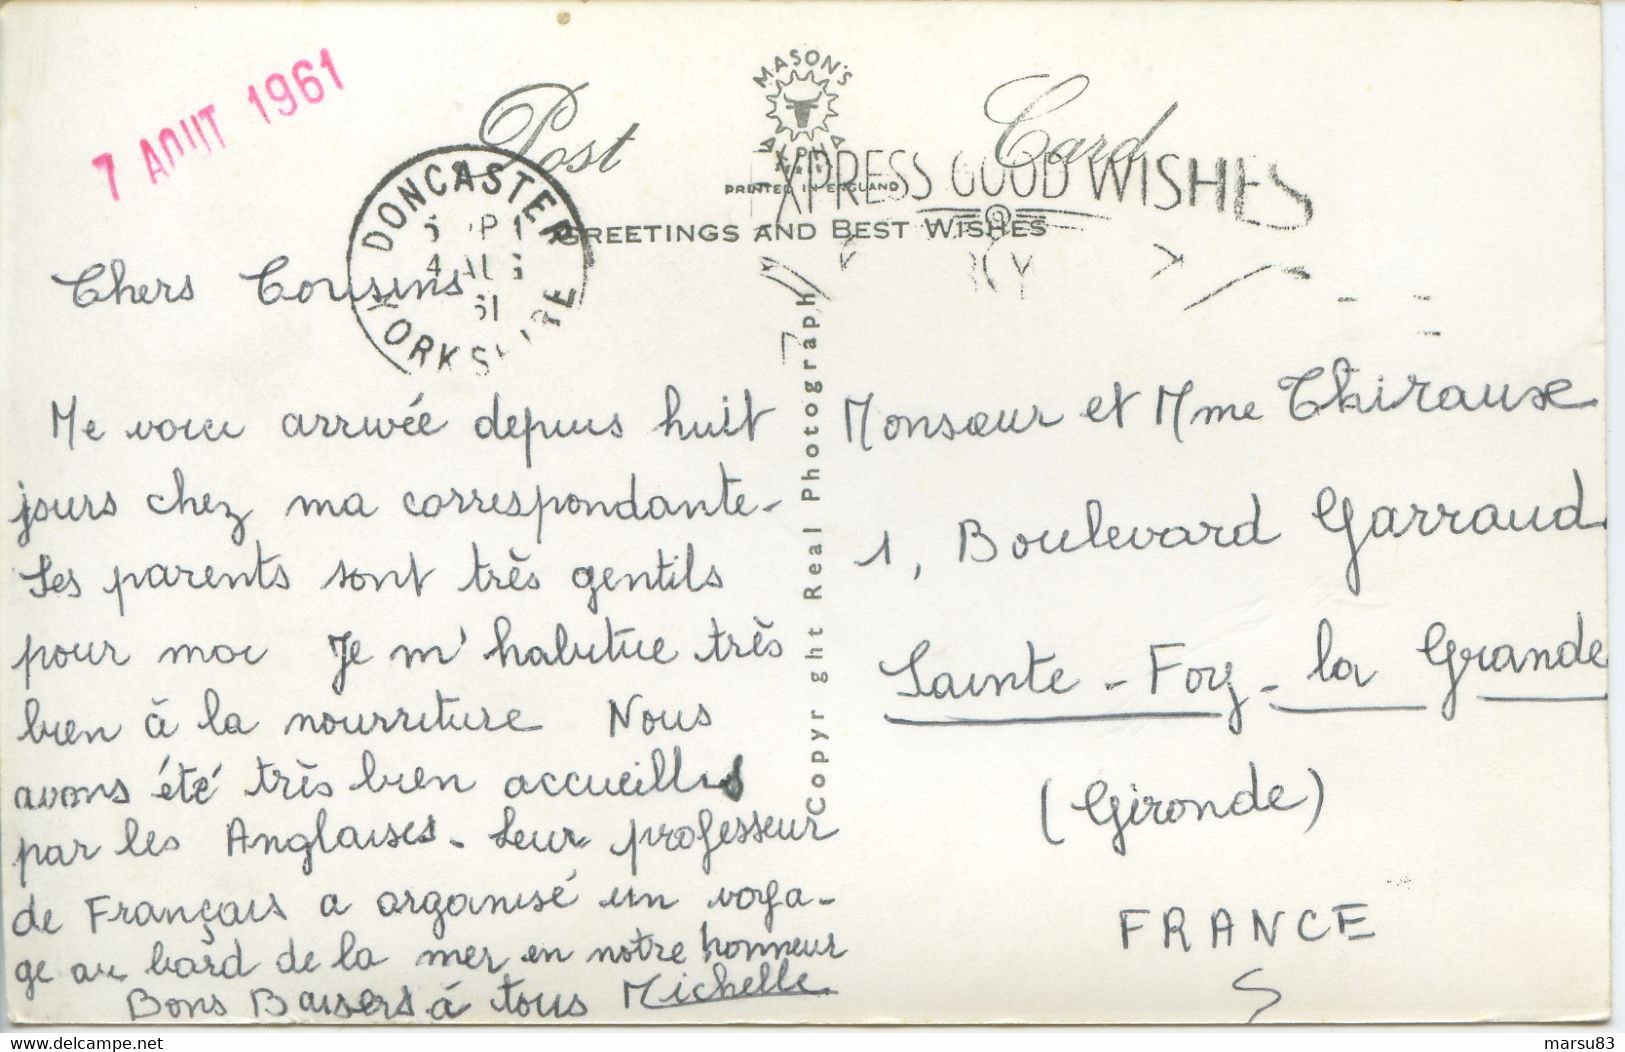 7 AOUT 1961
Post Card
MASON'S
ALPHA
SERIES
PRINTED IN ENGLAND
EXPRESS GOOD WISHES
GREETINGS AND BEST WISHES
DONCASTER
4 AUG
61
YORKSHIRE
Chers Cousins
Me voici arrivée depuis huit
jours chez ma correspondante-
Ses parents sont très gentils
pour moi Je m'habitue très
bien à la nourriture Nous
avons été très bien accueillis
par les Anglaises. Leur professeur
de Français a organisé un voya-
ge au bord de la mer en notre honneur
Bons Baisers à tous Michelle
Copyright Real Photograph
Monsieur et Mme Thiraux
1, Boulevard Garraud
Sainte-Foy-la Grande
(Gironde)
FRANCE
marsu83